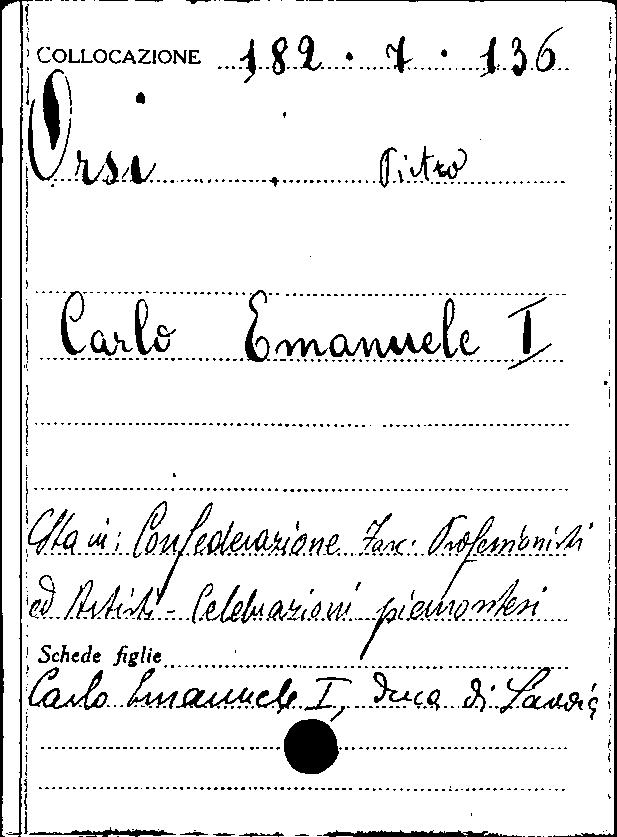 COLLOCAZIONE 182 . 7 . 136
Orsi Pietro
Carlo Emanuele I
(Sta in: Confederazione Fasc. Professionisti
ed Artisti - Celebrazioni piemontesi
Schede figlie
Carlo Emanuele I, duca di Savoia